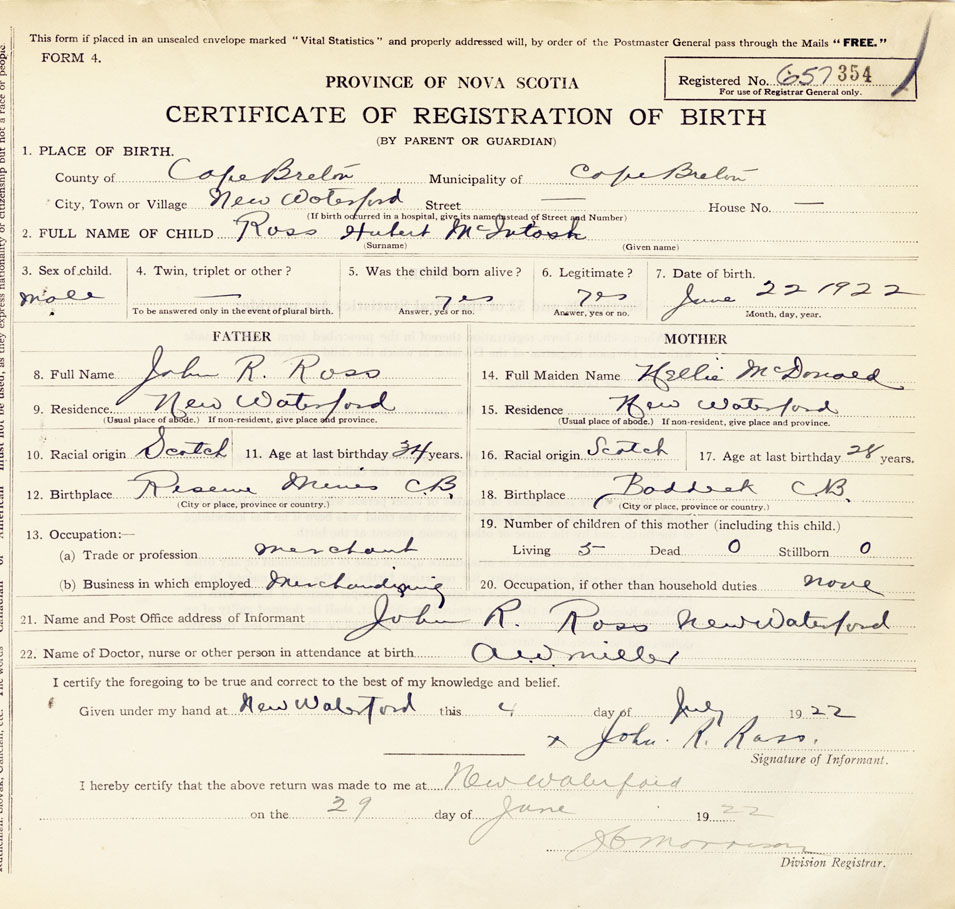 This form if placed in an unsealed envelope marked "Vital Statistics" and properly addressed will, by order of the Postmaster General pass through the Mails "FREE."
FORM 4.
Registered No. 657 354
For use of Registrar General only.
PROVINCE OF NOVA SCOTIA
CERTIFICATE OF REGISTRATION OF BIRTH
(BY PARENT OR GUARDIAN)
1. PLACE OF BIRTH.
County of Cape Breton Municipality of Cape Breton
City, Town or Village New Waterford Street — House No. —
(If birth occurred in a hospital, give its name instead of Street and Number)
2. FULL NAME OF CHILD Ross Hubert McIntosh
(Surname) (Given name)
3. Sex of child. 4. Twin, triplet or other? 5. Was the child born alive? 6. Legitimate? 7. Date of birth.
male — yes yes June 22 1922
To be answered only in the event of plural birth. Answer, yes or no. Answer, yes or no. Month, day, year.
FATHER MOTHER
8. Full Name John R. Ross 14. Full Maiden Name Nellie McDonald
9. Residence New Waterford 15. Residence New Waterford
(Usual place of abode.) If non-resident, give place and province. (Usual place of abode.) If non-resident, give place and province.
10. Racial origin Scotch 11. Age at last birthday 34 years. 16. Racial origin Scotch 17. Age at last birthday 28 years.
12. Birthplace Reserve Mines C.B. 18. Birthplace Baddeck C.B.
(City or place, province or country.) (City or place, province or country.)
13. Occupation:— 19. Number of children of this mother (including this child.)
(a) Trade or profession merchant Living 5 Dead 0 Stillborn 0
(b) Business in which employed Merchandizing 20. Occupation, if other than household duties none
21. Name and Post Office address of Informant John R. Ross New Waterford
22. Name of Doctor, nurse or other person in attendance at birth A W Miller
I certify the foregoing to be true and correct to the best of my knowledge and belief.
Given under my hand at New Waterford this 4 day of July 1922
x John. R. Ross.
Signature of Informant.
I hereby certify that the above return was made to me at New Waterford
on the 29 day of June 1922
Morrison
Division Registrar.